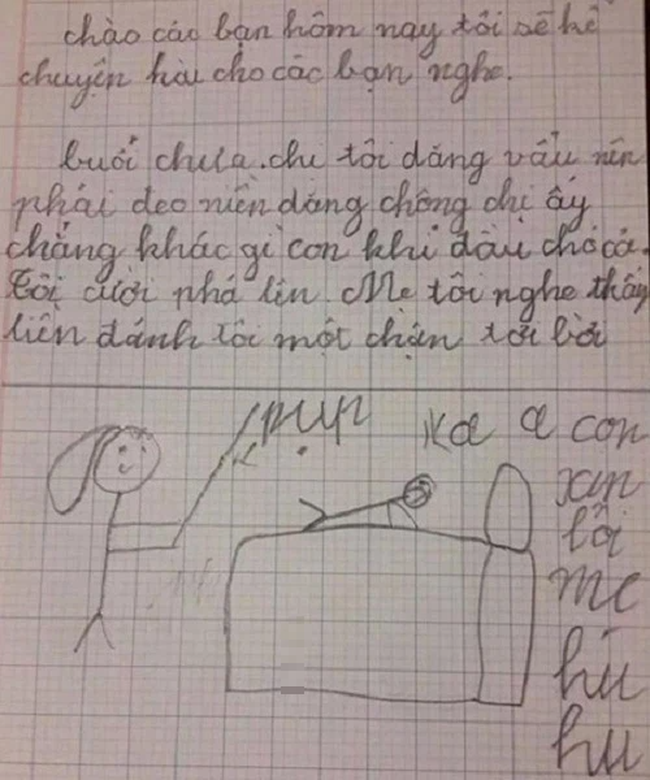 chào các bạn hôm nay tôi sẽ kể
chuyện hài cho các bạn nghe.
buổi chưa. chi tôi dăng vẩu nên
phải deo niền dăng chông chị ấy
chẳng khác gì con khỉ dầu chó cả.
Tôi cười phá lên. Mẹ tôi nghe thấy
liền dánh tôi một chận tơi bời
pụp
Ka a con
xin
lỗi
mẹ
hú
hu